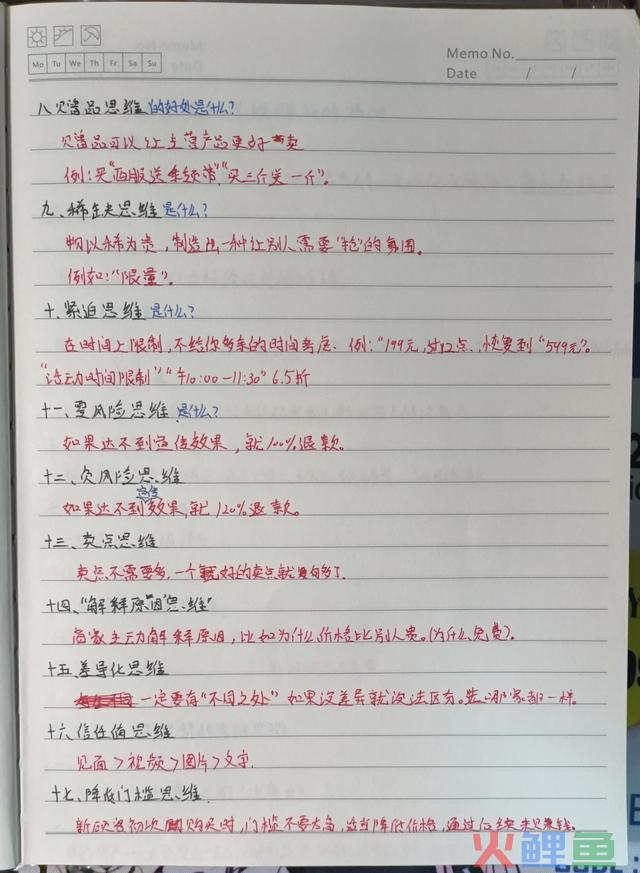 Mo Tu We Th Fr Sa Su
Memo No.
Date / /
八、赠品思维的好处是什么？
赠品可以让主营产品更好卖
例：买“西服送条领带”，“买三斤送一斤”。
九、稀缺思维是什么？
物以稀为贵，制造出一种让别人需要“抢”的氛围。
例如：“限量”。
十、紧迫思维是什么？
在时间上限制，不给你多余的时间考虑、例：“199元，过12点，恢复到“599元”。
“活动时间限制”“午10:00-11:30”6.5折
十一、零风险思维是什么？
如果达不到宣传效果，就100%退款。
十二、负风险思维
如果达不到宣传效果，就120%退款。
十三、卖点思维
卖点不需要多，一个好的卖点就够多了
十四、“解释原因思维”
商家主动解释原因，比如为什么价格比别人贵。（为什么免费）。
十五差异化思维
一定要有“不同之处”如果没差异就没法区分。选哪家都一样。
十六信任值思维
见面>视频>图片>文字.
十七、降低门槛思维.
新顾客初次购买时，门槛不要太高，适当降低价格，通过后续来赚钱。
火鲤鱼